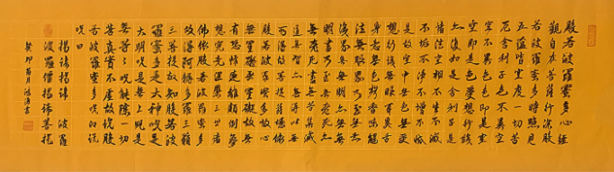 般若波羅蜜多心經
觀自在菩薩行深般
若波羅蜜多時照見
五蘊皆空度一切苦
厄舍利子色不異空
空不異色色即是空
空即是色受想行識
亦復如是舍利子是
諸法空相不生不滅
不垢不淨不增不減
是故空中無色無受
想行識無眼耳鼻舌
身意無色聲香味觸
法無眼界乃至無意
識界無無明亦無無
明盡乃至無老死亦
無老死盡無苦集滅
道無智亦無得以無
所得故菩提薩埵依
般若波羅蜜多故心
無罣礙無罣礙故無
有恐怖遠離顛倒夢
想究竟涅槃三世諸
佛依般若波羅蜜多
故得阿耨多羅三藐
三菩提故知般若波
羅蜜多是大神咒是
大明咒是無上咒是
無等等咒能除一切
苦真實不虛故說般
若波羅蜜多咒即說
咒曰
揭諦揭諦 波羅
波羅僧揭諦菩提
癸卯 書